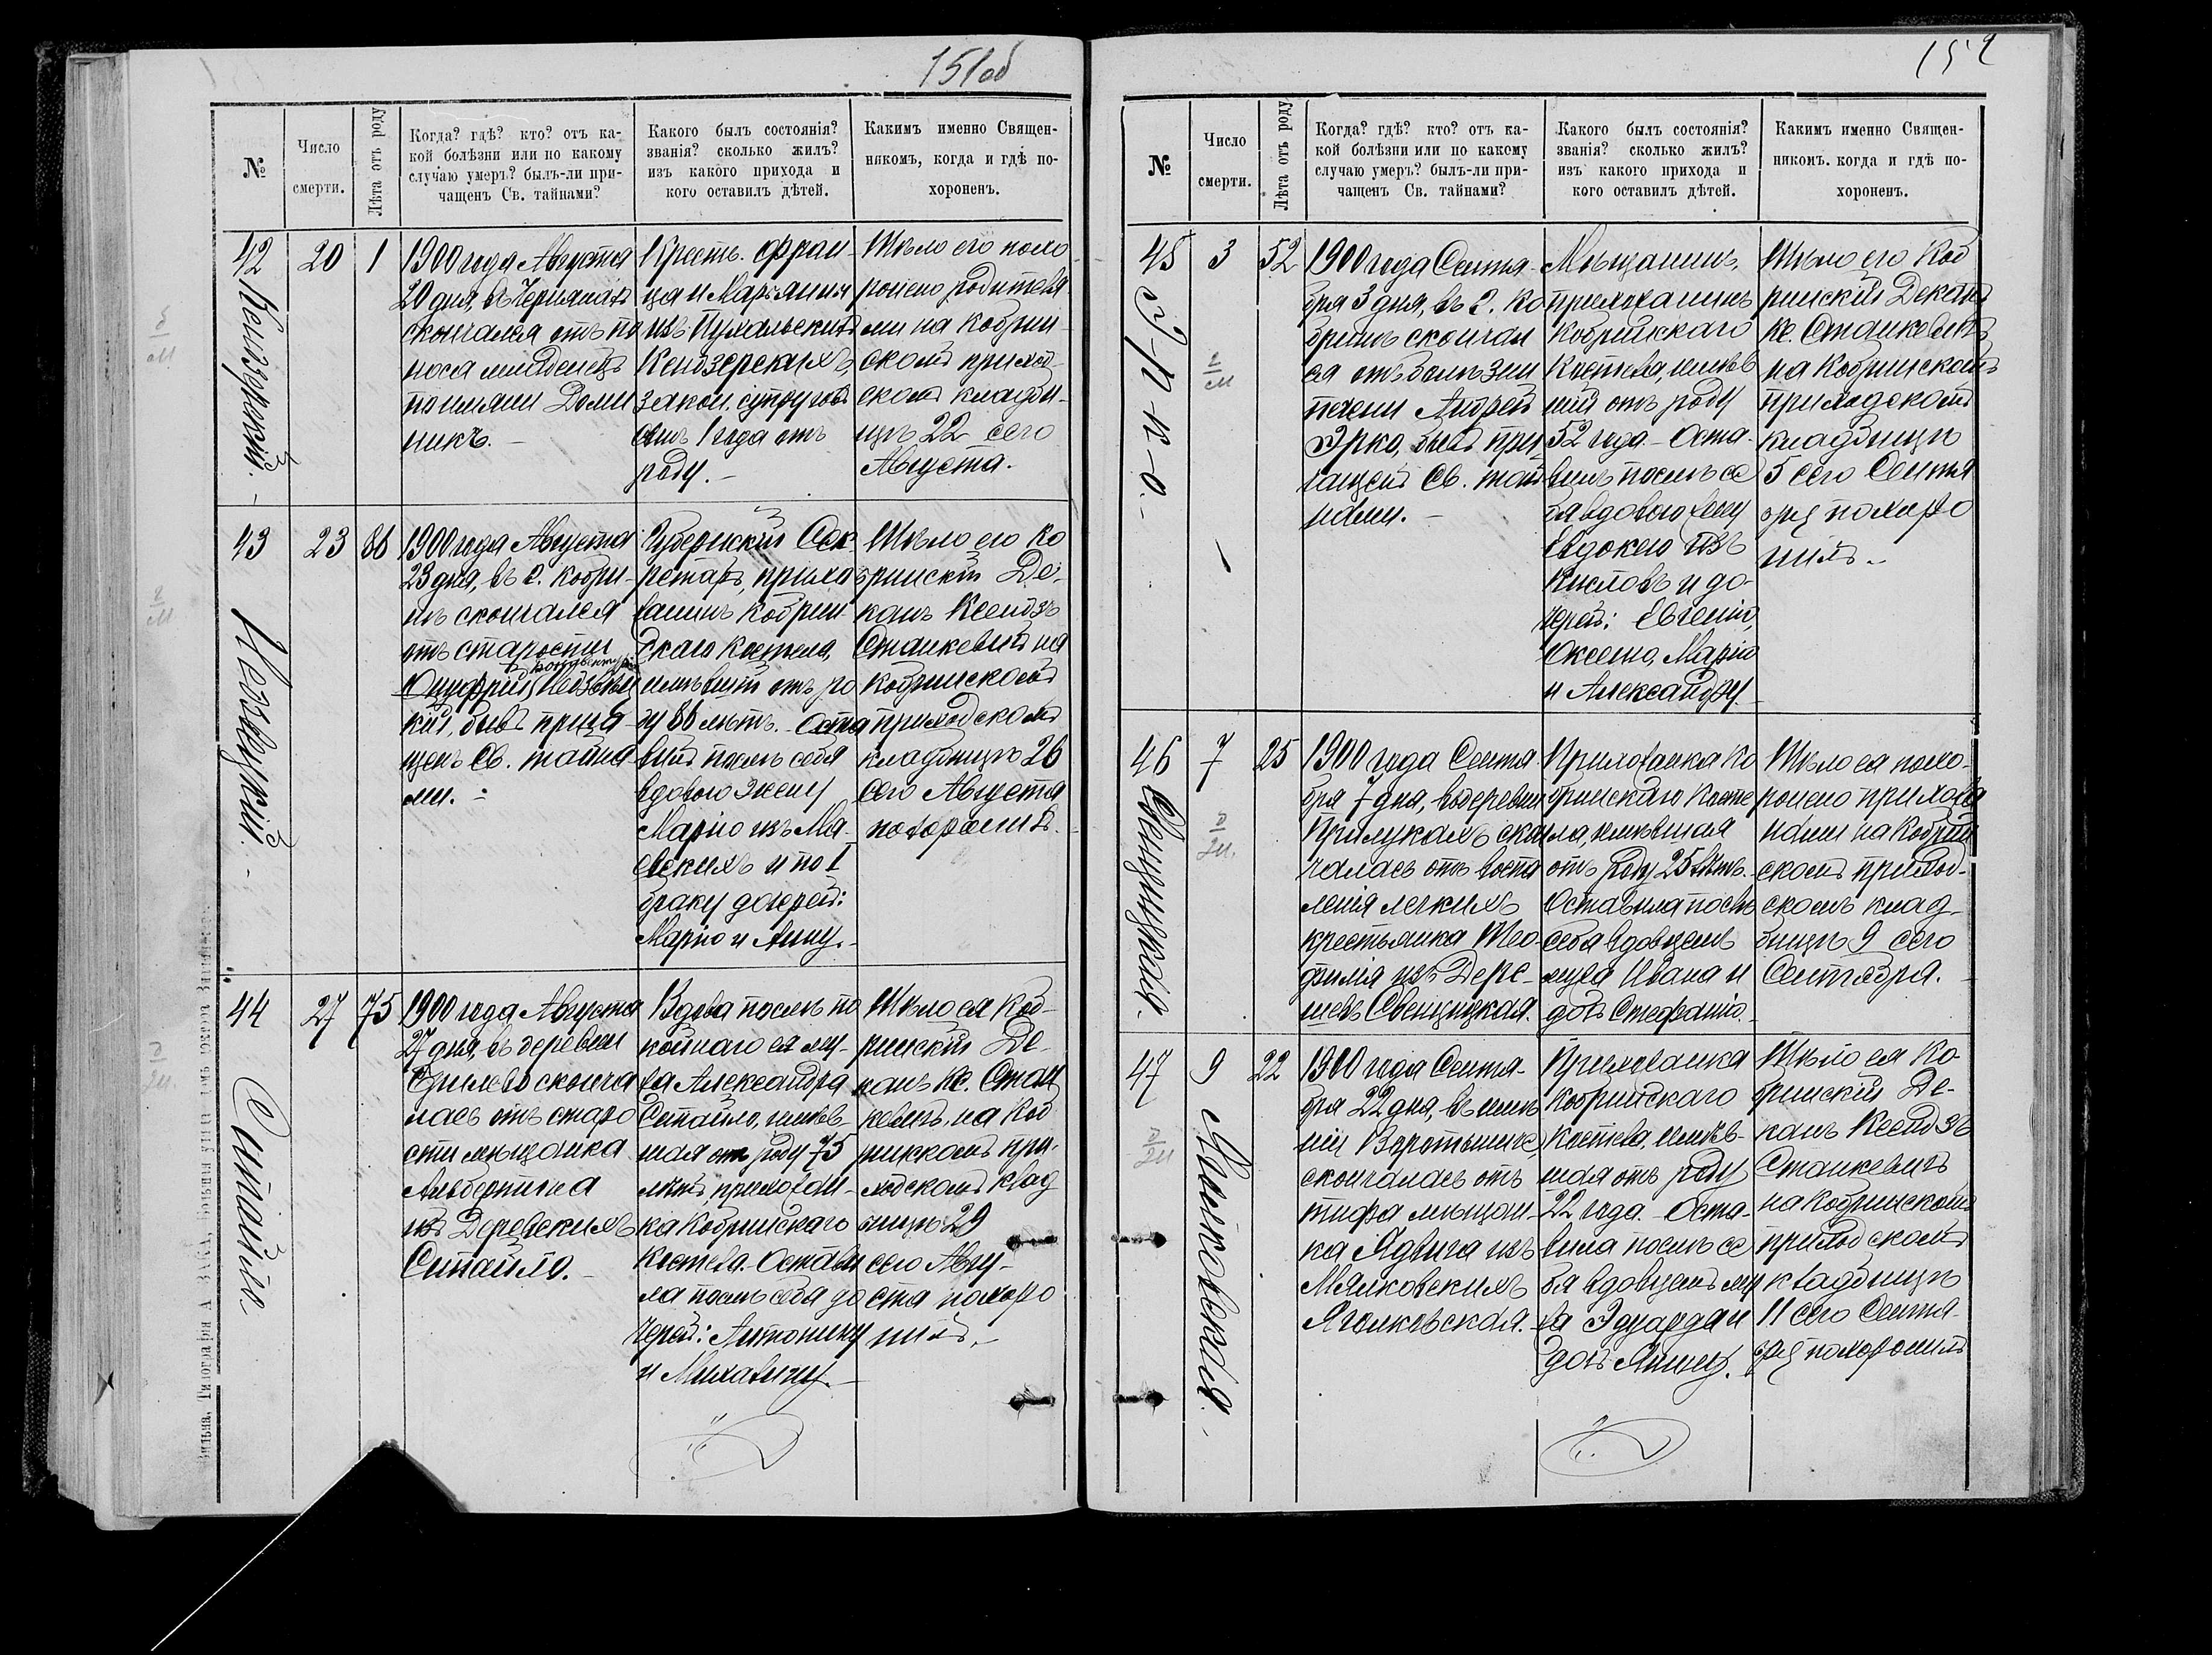 151об
№
Число
смерти.
Лѣта отъ роду
Когда? гдѣ? кто? отъ ка-
кой болѣзни или по какому
случаю умеръ? былъ-ли при-
чащенъ Св. тайнами?
Какого былъ состоянія?
званія? сколько жилъ?
изъ какого прихода и
кого оставилъ дѣтей.
Какимъ именно Священ-
никомъ, когда и гдѣ по-
хороненъ.
42
Кендзерскій.
20
1
1900 года Августа
20 дня, въ
скончался отъ по
носа младенецъ
по имени Доми
никъ.
Крест. Фран-
ца и Маріянны
изъ Пухальскихъ
Кендзерскихъ
закон. супруговъ
сынъ 1 года отъ
роду.
Тѣло его похо
ронено родителя
ми на Кобрин-
скомъ приход-
скомъ кладби-
щѣ 22 сего
Августа.
43
23
86
1900 года Августа
23 дня, въ г. Кобри-
нѣ скончался
отъ старости
Онуфрій
кій, бывъ прича
щенъ Св. тайна
ми.
Губернскій Сек
ретарь, прихо
жанинъ Кобрин
скаго Костела,
имѣвшій отъ ро
ду 86 лѣтъ. Оста
вилъ послѣ себя
вдовою жену
Марію изъ Мя-
евскихъ и по I
браку дочерей:
Марію и Анну.
Тѣло его Ко
бринскій Де-
канъ Ксендзъ
Станкевичъ на
Кобринскомъ
приходскомъ
кладбищѣ 26
сего Августа
похоронилъ.
44
Ситайло.
27
75
1900 года Августа
27 дня, въ деревни
сконча
лась отъ старо
сти мѣщанка
Альбертина
изъ Деревскихъ
Ситайло.
Вдова послѣ по
койнаго ея му-
жа Александра
Ситайло, имѣв-
шая отъ роду 75
лѣтъ прихожан-
ка Кобринскаго
Костела. Остави
ла послѣ себя до
черей: Антонину
и Михалину.
Тѣло ея Коб-
ринскій Де-
канъ Кс. Стан
кевичъ, на Коб
ринскомъ при-
ходскомъ клад
бищѣ 29
сего Авгу-
ста похоро
нилъ.
152
№
Число
смерти.
Лѣта отъ роду
Когда? гдѣ? кто? отъ ка-
кой болѣзни или по какому
случаю умеръ? былъ-ли при-
чащенъ Св. тайнами?
Какого былъ состоянія?
званія? сколько жилъ?
изъ какого прихода и
кого оставилъ дѣтей.
Какимъ именно Священ-
никомъ. когда и гдѣ по-
хороненъ.
45
Эрко.
3
52
1900 года Сентя-
бря 3 дня, въ г. Ко
бринѣ скончал
ся отъ болѣзни
печени Андрей
Эрко, бывъ при
чащенъ Св. тай
нами.
Мѣщанинъ,
прихожанинъ
Кобринскаго
Костела, имѣв
шій отъ роду
52 года. Оста-
вилъ послѣ се
бя вдовою жену
Евдокею изъ
Кисловъ и до-
черей: Евгенію,
Оксеню, Марію
и Александру.
Тѣло его Коб
ринскій Деканъ
Кс. Станкевичъ
на Кобринскомъ
приходскомъ
кладбищѣ
5 сего Сентя
бря похоро
нилъ.
46
Свенцицкая.
7
25
1900 года Сентя
бря 7 дня, въ деревни
Прилукахъ скон
чалась отъ воспа
ленія легкихъ
крестьянка Тео-
филія изъ Дере-
шевъ Свенцицкая.
Прихожанка Ко
бринскаго Косте
ла, имѣвшая
отъ роду 25 лѣтъ.
Оставила послѣ
себя вдовцемъ
мужа Ивана и
дочь Стефанію.
Тѣло ея похо-
ронено прихожа
нами на Кобрин
скомъ приход-
скомъ клад-
бищѣ 9 сего
Сентября.
47
9
22
1900 года Сентя-
бря 22 дня, въ имѣ
ніи
скончалась отъ
тифа мѣщан-
ка Ядвига изъ
Мялковскихъ
Прихожанка
Кобринскаго
Костела, имѣв-
шая отъ роду
22 года. Оста-
вила послѣ се
бя вдовцемъ му
жа Эдуарда и
дочь Янину.
Тѣло ея Ко-
бринскій Де-
канъ Ксендзъ
Станкевичъ
на Кобринскомъ
приходскомъ
кладбищѣ
11 сего Сентя-
бря похоронилъ